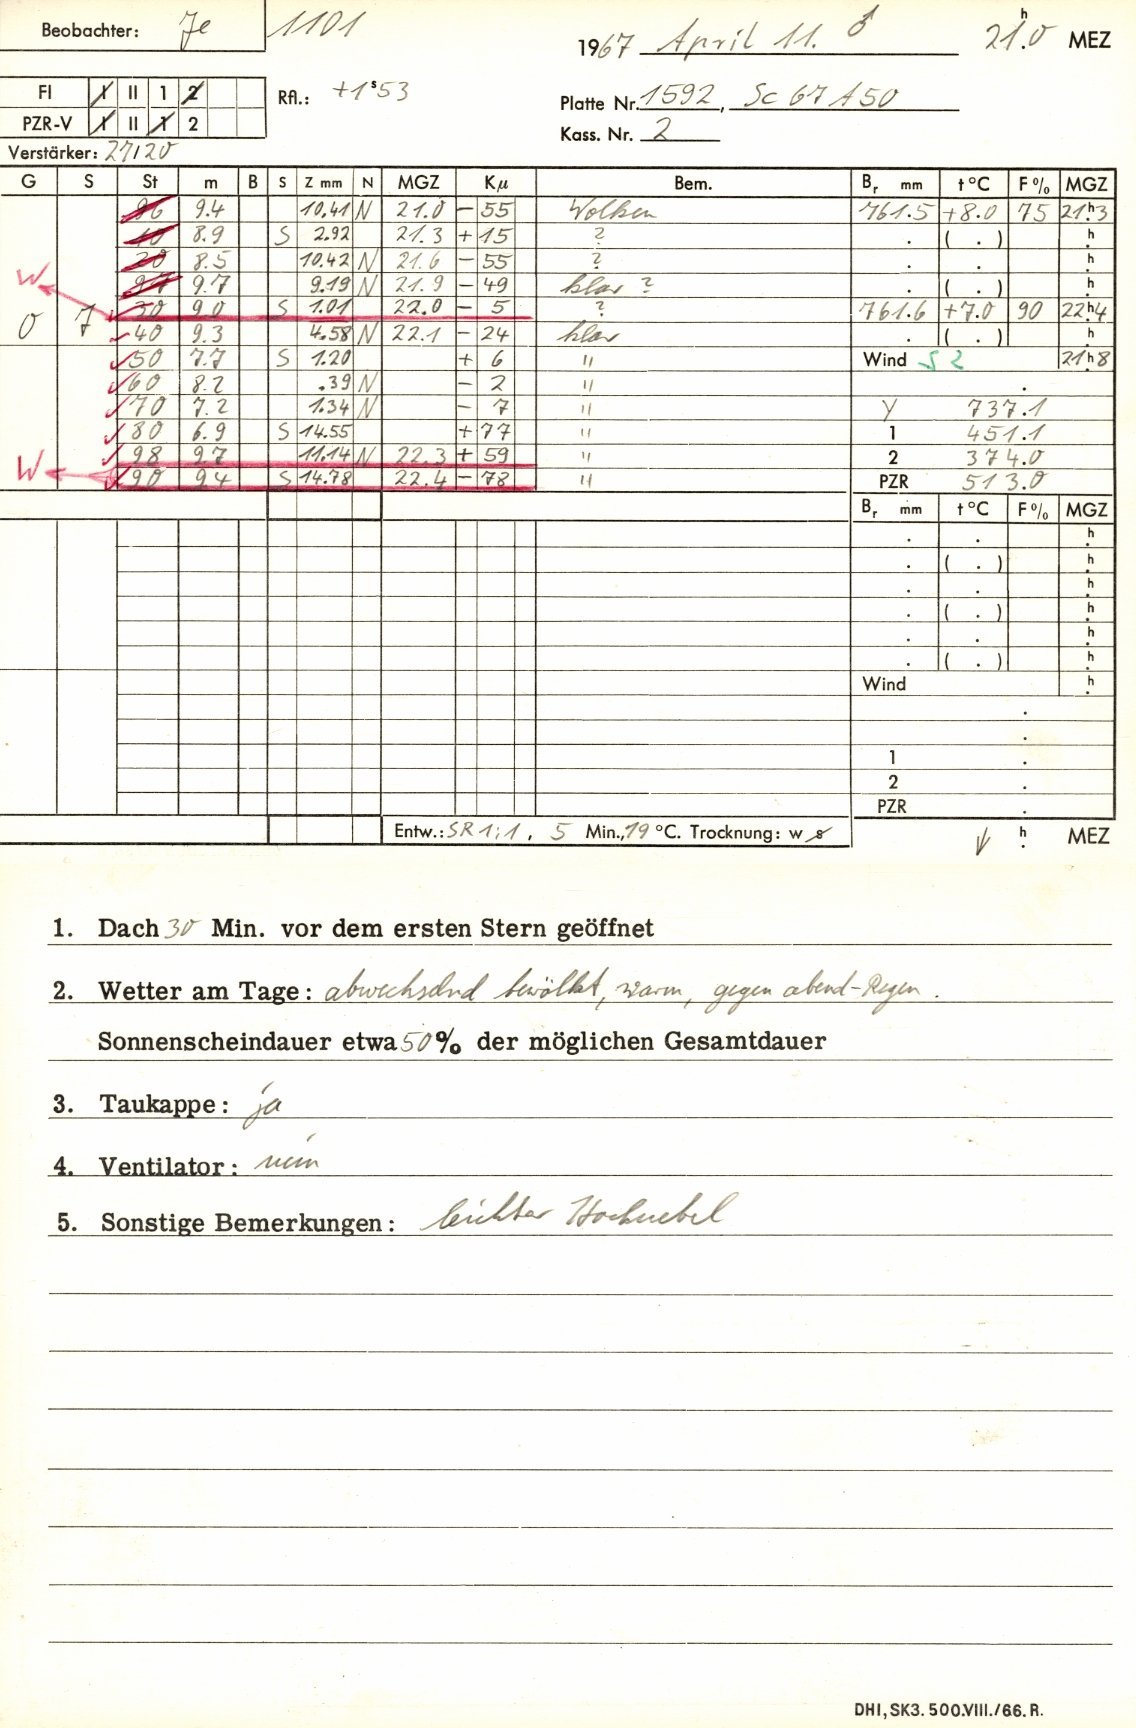 Beobachter: Je 1101
1967 April 11. ♂ 21ʰ.0 MEZ
FI I II 1 2
Rfl.: +1ˢ53
Platte Nr. 1592, Sc 67 A50
PZR-V I II 1 2
Kass. Nr. 2
Verstärker: 27/20
G S St m B S Z mm N MGZ Kμ Bem. Bᵣ mm t°C F% MGZ
96 9.4 10.41 N 21.0 − 55 Wolken 761.5 +8.0 75 21ʰ.3
10 8.9 S 2.92 21.3 + 15 ? . ( . ) ʰ.
20 8.5 10.42 N 21.6 − 55 ? . . ʰ.
W 97 9.7 9.19 N 21.9 − 49 klar ? . ( . ) ʰ.
30 9.0 S 1.01 22.0 − 5 ? 761.6 +7.0 90 22ʰ.4
0 7 40 9.3 4.58 N 22.1 − 24 klar . ( . ) ʰ.
50 7.7 S 1.20 + 6 " Wind S 2 21ʰ.8
60 8.2 .39 N − 2 " .
70 7.2 1.34 N − 7 " Y 737.1
80 6.9 S 14.55 + 77 " 1 451.1
98 9.7 11.14 N 22.3 + 59 " 2 374.0
W 90 9.4 S 14.78 22.4 − 78 " PZR 513.0
Bᵣ mm t°C F% MGZ
. . ʰ.
. ( . ) ʰ.
. . ʰ.
. ( . ) ʰ.
. . ʰ.
. ( . ) ʰ.
Wind ʰ.
.
.
1 .
2 .
PZR .
Entw.: SR 1:1, 5 Min., 19 °C. Trocknung: w s
ʰ. MEZ
1. Dach 30 Min. vor dem ersten Stern geöffnet
2. Wetter am Tage: abwechselnd bewölkt, warm, gegen abend-Regen.
Sonnenscheindauer etwa 50% der möglichen Gesamtdauer
3. Taukappe: ja
4. Ventilator: nein
5. Sonstige Bemerkungen: leichter Hochnebel
DHI, SK3. 500.VIII./66. R.